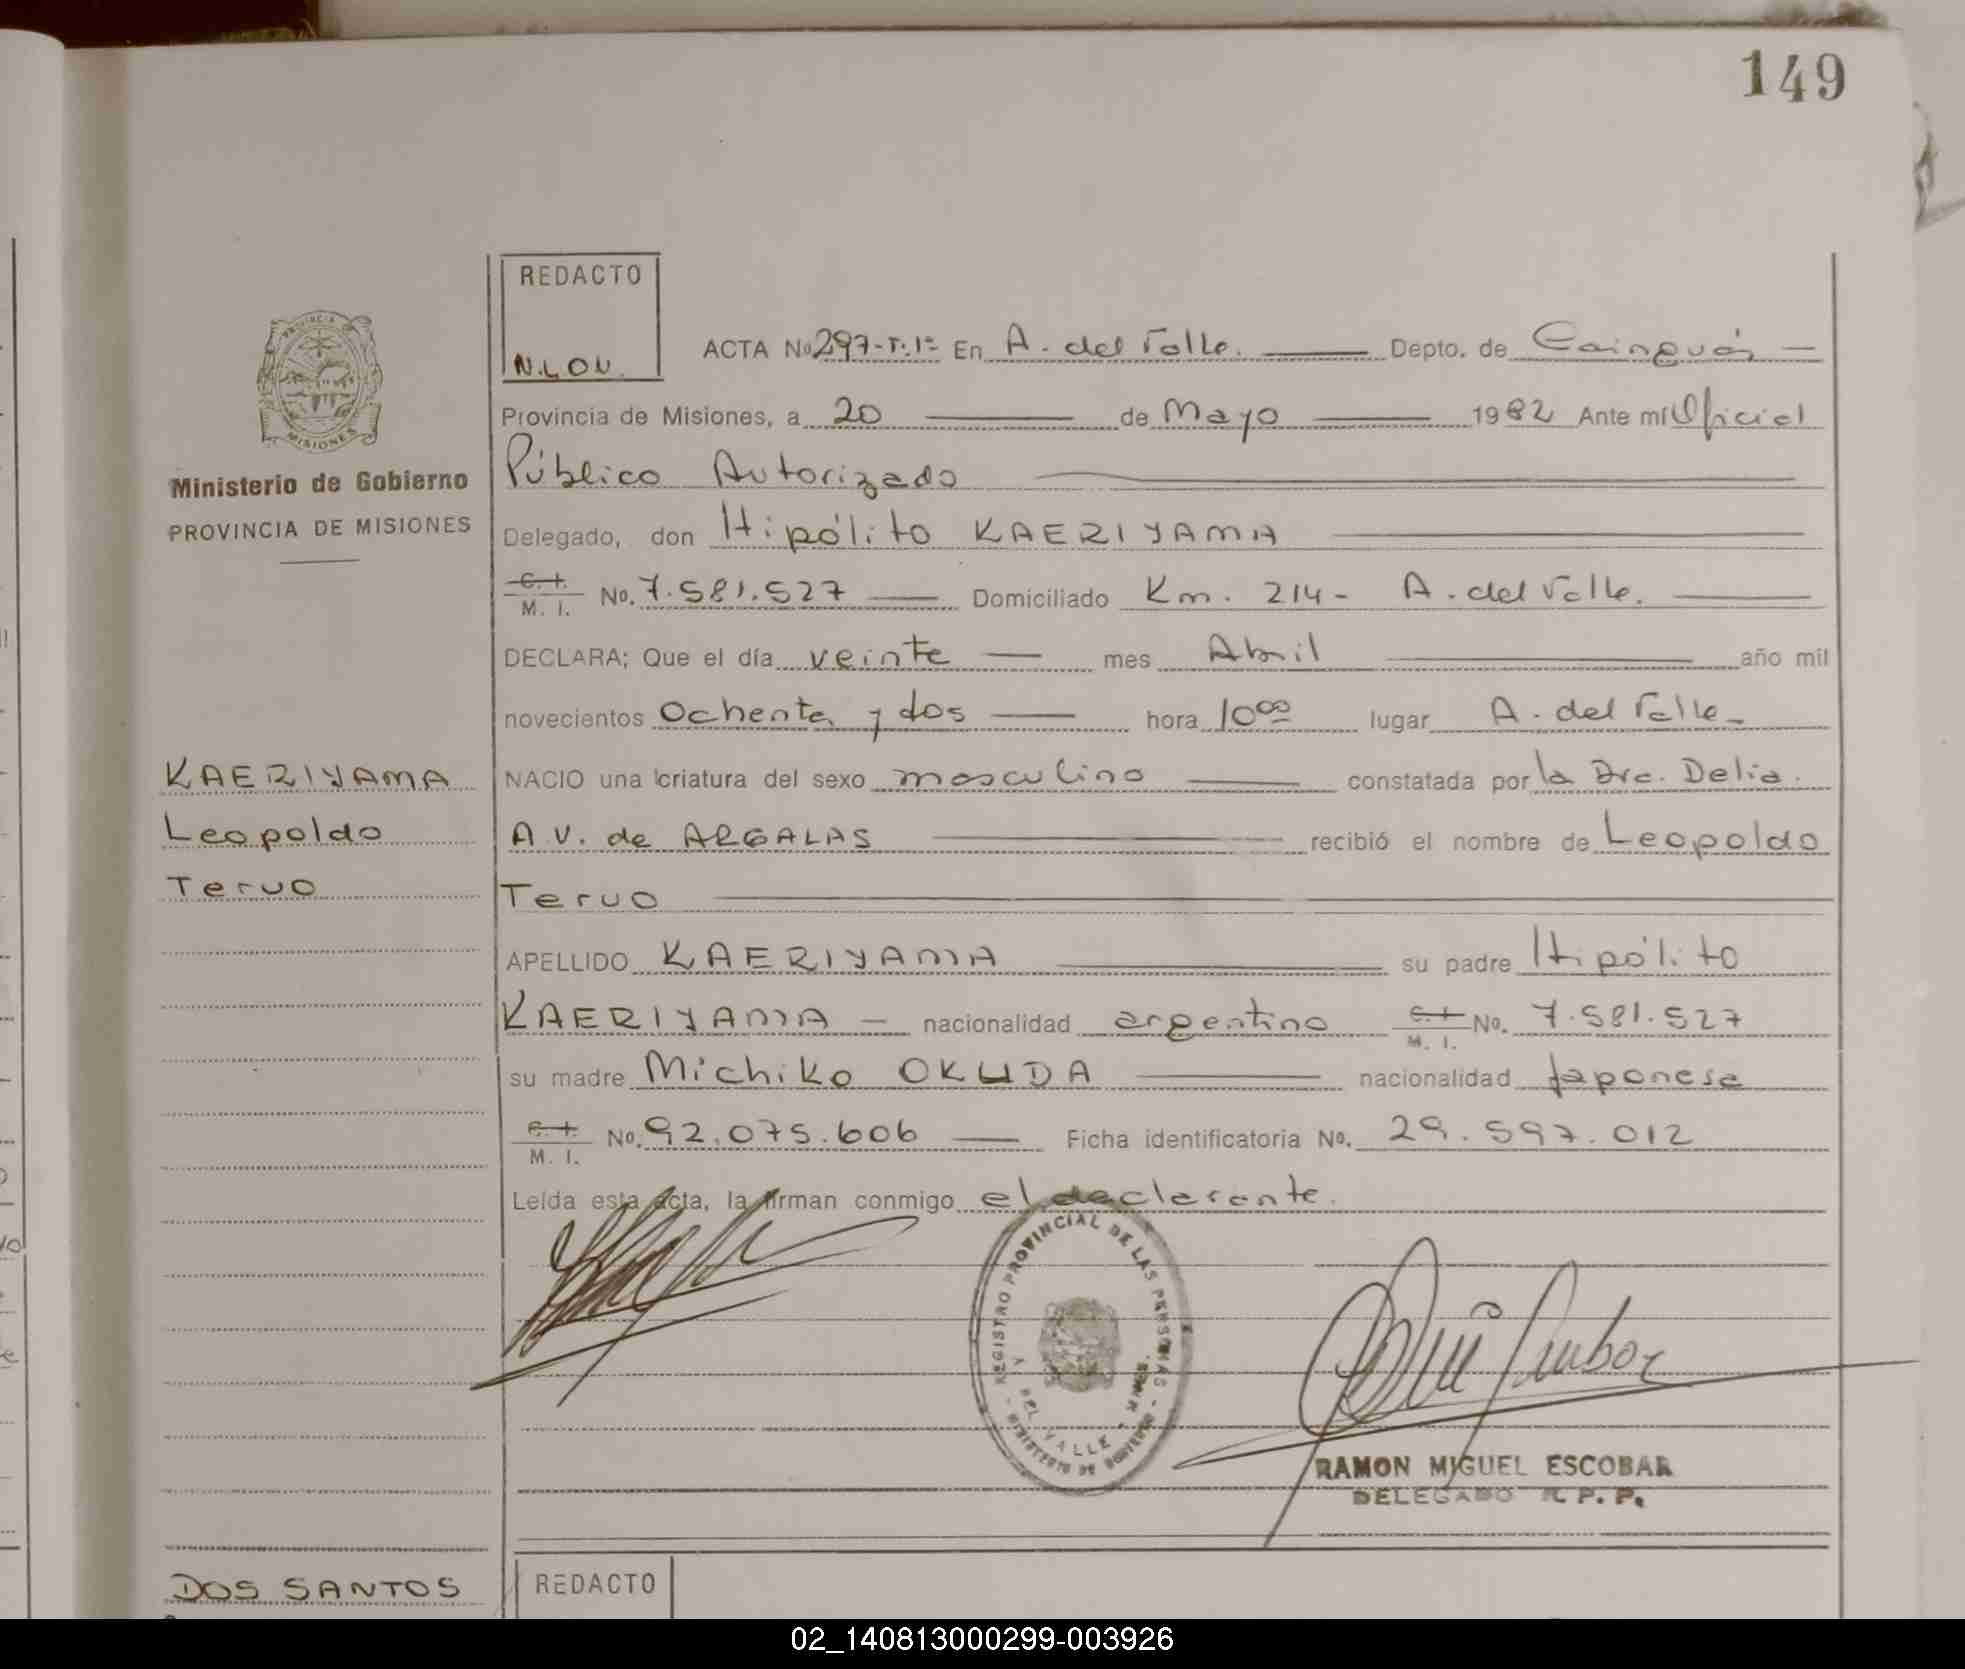 149
REDACTO
N.L.O.V.
PROVINCIA
MISIONES
Ministerio de Gobierno
PROVINCIA DE MISIONES
ACTA No 297-T:1º En A. del Valle. Depto. de Cainguás
Provincia de Misiones, a 20 de Mayo 1982 Ante mí Oficial
Público Autorizado
Delegado, don Hipólito KAERIYAMA
C. I. M. I. No. 7.581.527 Domiciliado Km. 214 - A. del Valle.
DECLARA; Que el día veinte mes Abril año mil
novecientos Ochenta y dos hora 10oo lugar A. del Valle
KAERIYAMA
Leopoldo
Teruo
NACIO una criatura del sexo masculino constatada por la Dra. Delia.
A.V. de ARGALAS recibió el nombre de Leopoldo
Teruo
APELLIDO KAERIYAMA su padre Hipólito
KAERIYAMA - nacionalidad argentino C. I. M. I. No. 7.581.527
su madre Michiko OKUDA nacionalidad Japonesa
C. I. M. I. No. 92.075.606 Ficha identificatoria No. 29.597.012
Leída esta acta, la firman conmigo el declarante.
REGISTRO PROVINCIAL DE LAS PERSONAS
MINISTERIO DE GOBIERNO
DEL VALLE
RAMON MIGUEL ESCOBAR
DELEGADO R. P. P.
DOS SANTOS
REDACTO
02_140813000299-003926